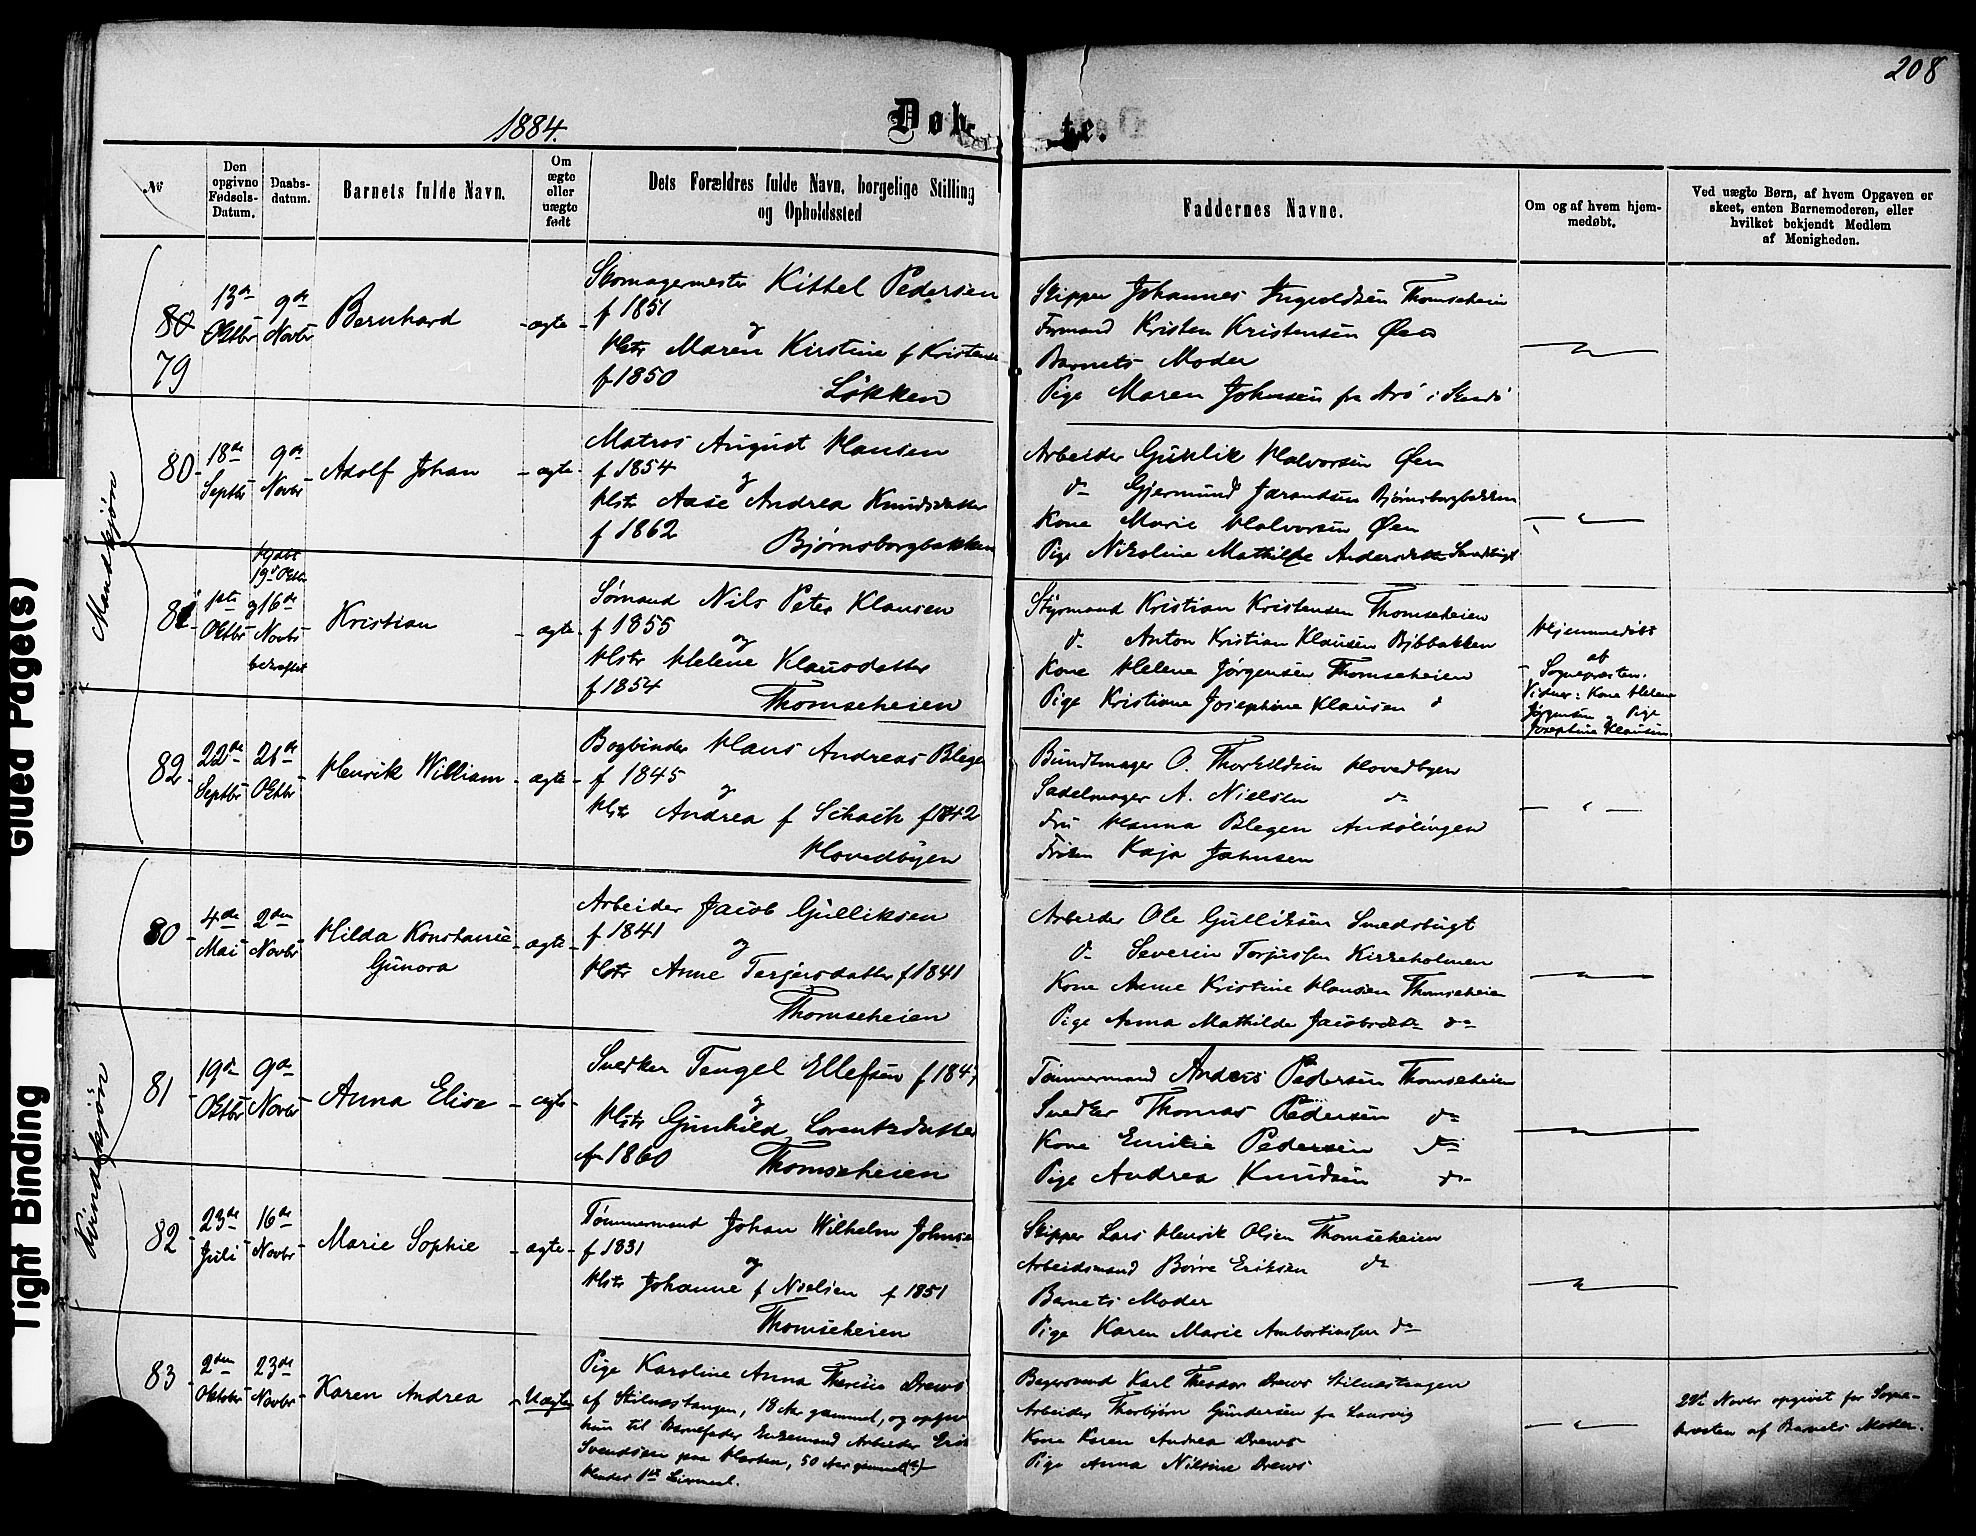 208
1884.
Døbte.
No
Den opgivne Fødsels-Datum.
Daabs-datum.
Barnets fulde Navn.
Om ægte eller uægte født
Dets Forældres fulde Navn, borgelige Stilling og Opholdssted
Faddernes Navne.
Om og af hvem hjem-medøbt.
Ved uægte Børn, af hvem Opgaven er skeet, enten Barnemoderen, eller hvilket bekjendt Medlem af Menigheden.
Mandkjøn
80
79
13de Oktbr
9de Novbr
Bernhard
ægte
Skomagermester Kittel Pedersen
f 1851
og
Hstr Maren Kirstine f Kristensen
f 1850
Løkken
Skipper Johannes Ingvoldsen Thomseheien
Formand Kristen Kristensen Øen
Barnets Moder
Pige Maren Johnsen fra Arø i
80
18de Septbr
9de Novbr
Adolf Johan
ægte
Matros August Hansen
f 1854
og
Hstr Aase Andrea Knudsdatter
f 1862
Bjørnsborgbakken
Arbeider Gunlik Halvorsen Øen
do Gjermund Jarandsen Bjørnsborgbakken
Kone Marie Halvorsen Øen
Pige Nikoline Mathilde Andersdatter
81
1ste Oktbr
Hjdbt
19de Oktbr
og 16de
Novbr
bekræftet
Kristian
ægte
Sømand Nils Peter Klausen
f 1855
og
Hstr Helene Klausdatter
f 1854
Thomseheien
Styrmand Kristian Kristensen Thomseheien
do Anton Kristian Klausen
Kone Helene Jørgensen Thomseheien
Pige Kristiane Josephine Klausen do
Hjemmedøbt
af
Sognepræsten.
Vidner: Kone Helene
Jørgensen og Pige
Josephine Klausen
82
22de Septbr
26de Oktbr
Henrik William
ægte
Bogbinder Hans Andreas Blegen
f 1845
og
Hstr Andrea f Schack f 1842
Hovedbyen
Bundtmager O. Thorkildsen Hovedbyen
Sadelmager A. Nielsen do
Fru Hanna Blegen
Frøken Kaja Johnsen
Kvindekjøn
80
4de Mai
2den Novbr
Hilda Konstance
Gunora
ægte
Arbeider Jacob Gulliksen
f 1841
og
Hstr Anne Terjersdatter f 1841
Thomseheien
Arbeider Ole Gulliksen Smedsbugt
do Severin Torjussen Kirkeholmen
Kone Anne Kristine Hansen Thomseheien
Pige Anna Mathilde Jacobsdatter do
81
19de Oktbr
9de Novbr
Anna Elise
ægte
Snedker Tengel Ellefsen f 1847
og
Hstr Gunhild Lorentzdatter
f 1860
Thomseheien
Tømmermand Anders Pedersen Thomseheien
Snedker Thomas Pedersen do
Kone Emilie Pedersen do
Pige Andrea Knudsen do
82
23de Juli
16de Novbr
Marie Sophie
ægte
Tømmermand Johan Wilhelm Johnsen
f 1831
og
Hstr Johanne f Nielsen f 1851
Thomseheien
Skipper Lars Henrik Olsen Thomseheien
Arbeidsmand Børre Eriksen do
Barnets Moder
Pige Karen Marie Ambortiussen do
83
2den Oktober
23de Novbr
Karen Andrea
Uægte
Pige Karoline Anna Therese Drews
af Stilnæstangen, 18 Aar gammel, og opgiver
hun til Barnefader Enkemand Arbeider Erik
Svendsen paa Hesten, 50 Aar gammel (?)
Hendes 1ste Leiermaal.
Karl Theodor Drews Stilnæstangen
Arbeider Thorbjørn Gundersen fra Laurvig
Kone Karen Andrea Drews
Pige Anna Nilsine Drews
22de Novbr opgivet for Sogne-
præsten af Barnets Moder.
Glued Page(s)
Tight Binding